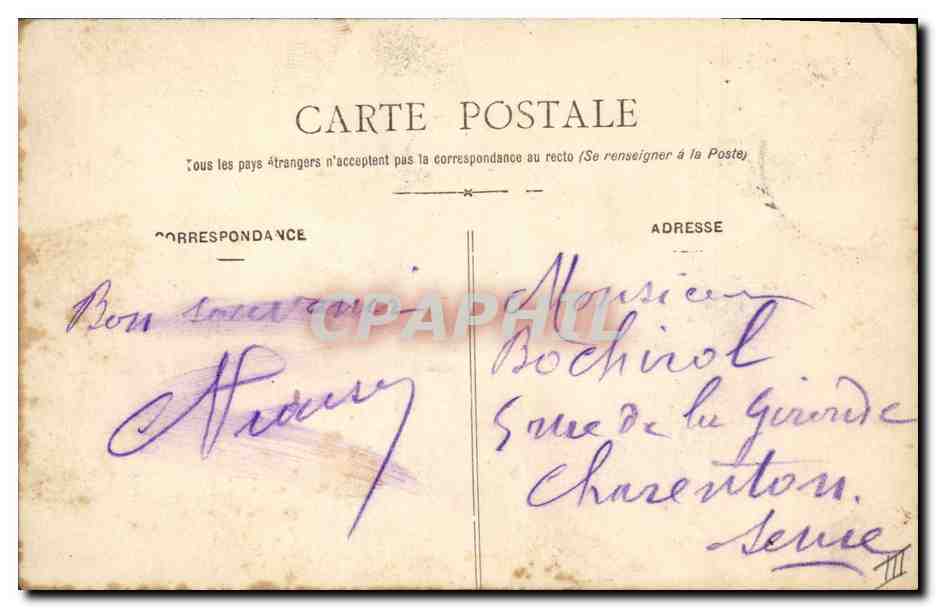 CARTE POSTALE
Tous les pays étrangers n'acceptent pas la correspondance au recto (Se renseigner à la Poste)
CORRESPONDANCE
ADRESSE
Bon souvenir
Monsieur
Bochirol
5 rue de la Gironde
Charenton.
Seine
III
CPAPHIL